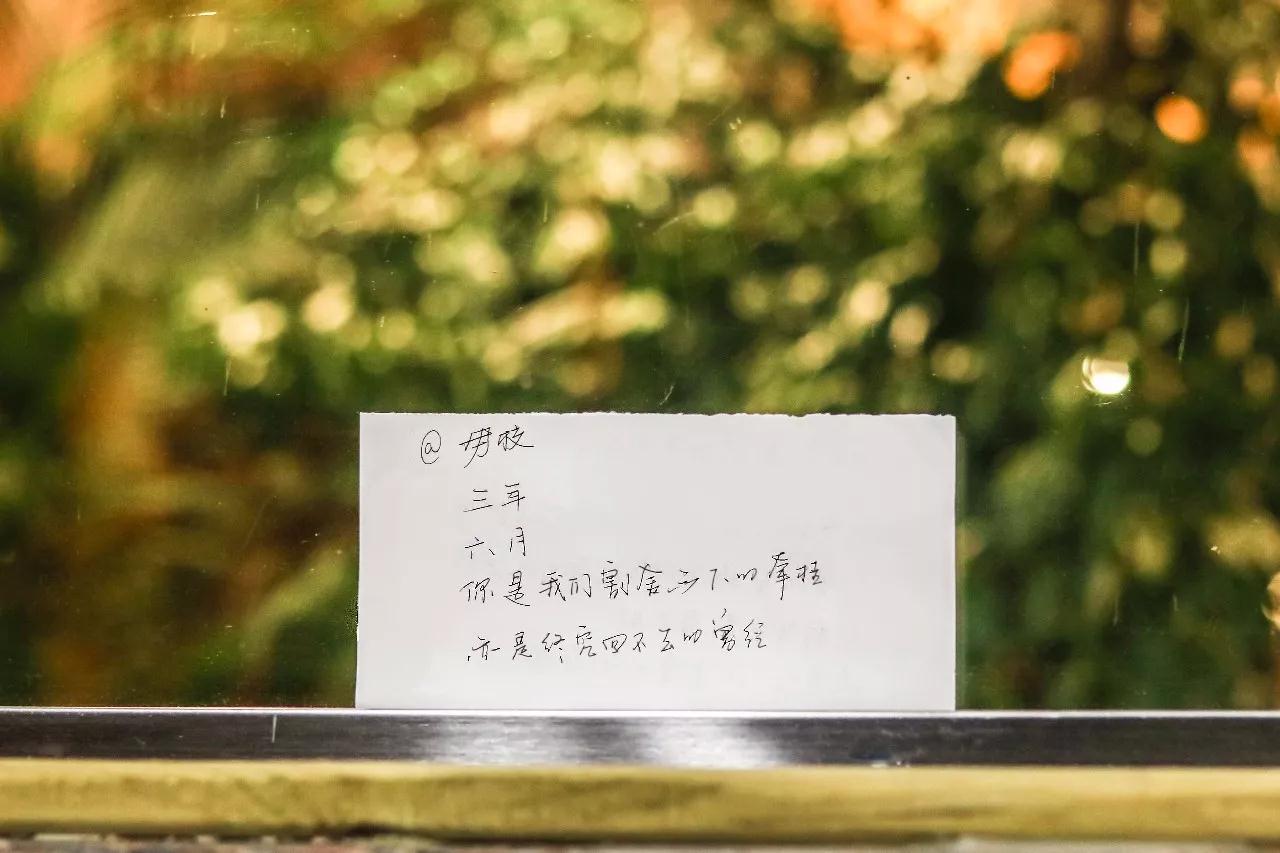 @ 母校
三年
六月
你是我们割舍不下的牵挂
亦是终究回不去的曾经